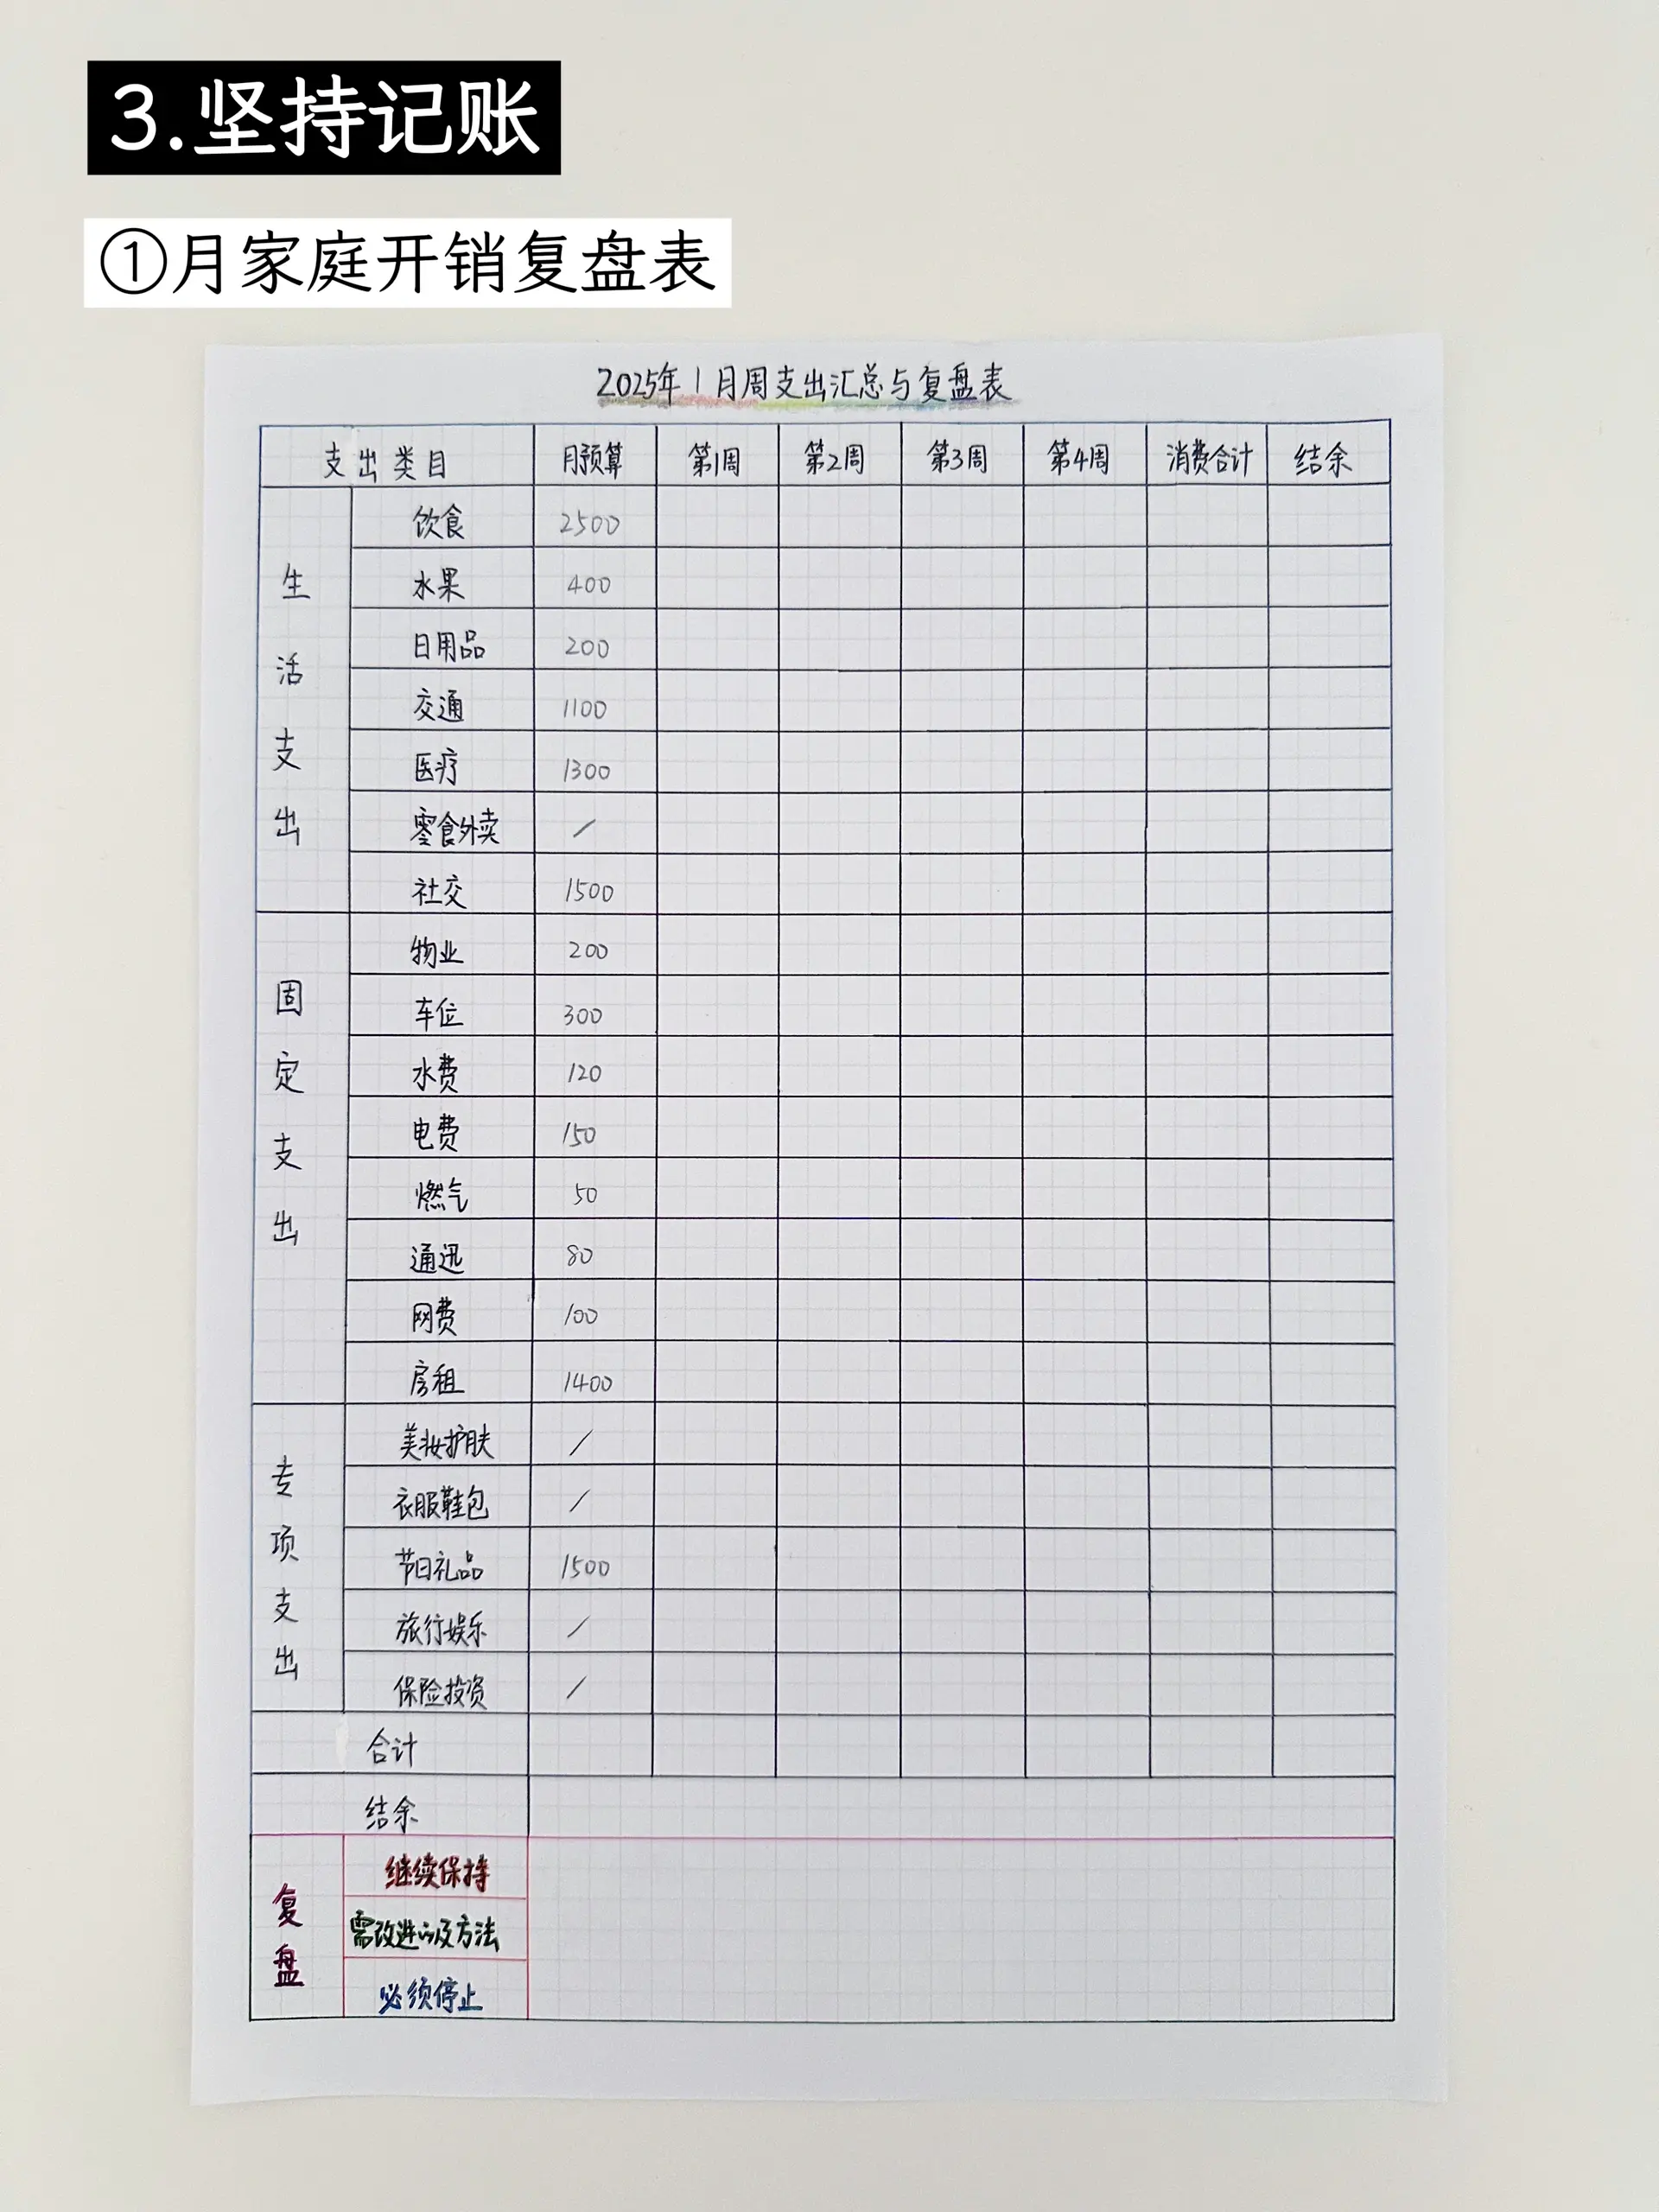 3.坚持记账
①月家庭开销复盘表
2025年1月周支出汇总与复盘表
支出类目 月预算 第1周 第2周 第3周 第4周 消费合计 结余
生活支出
饮食 2500
水果 400
日用品 200
交通 1100
医疗 1300
零食外卖 /
社交 1500
固定支出
物业 200
车位 300
水费 120
电费 150
燃气 50
通迅 80
网费 100
房租 1400
专项支出
美妆护肤 /
衣服鞋包 /
节日礼品 1500
旅行娱乐 /
保险投资 /
合计
结余
复盘
继续保持
需改进以及方法
必须停止